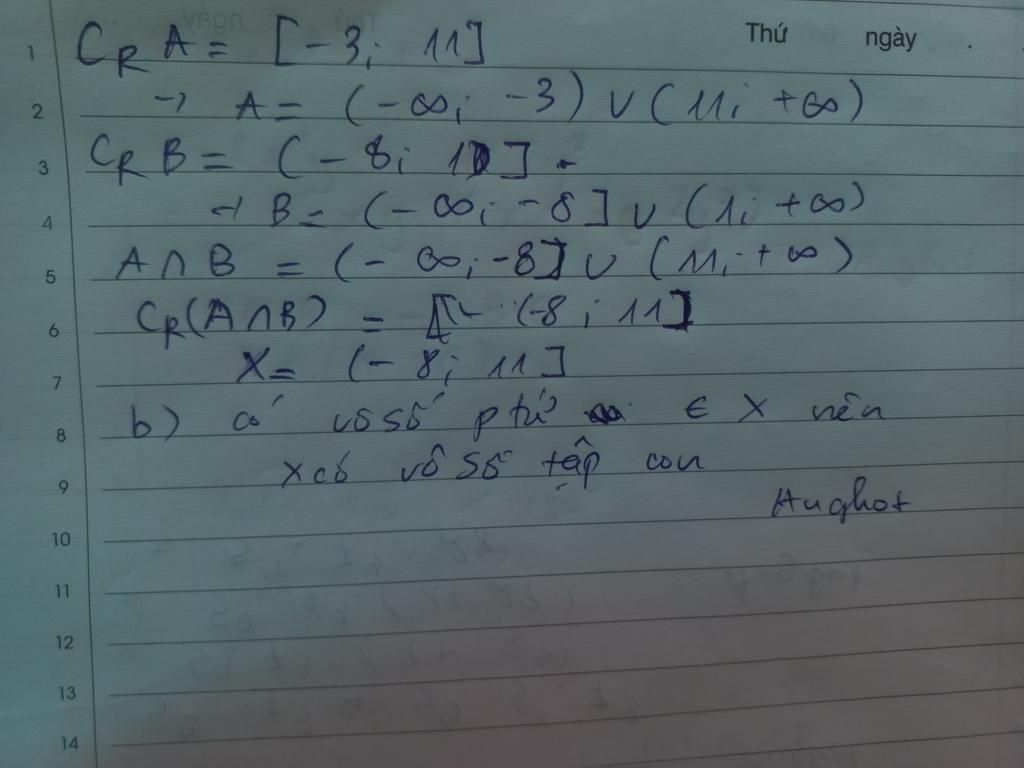 Thứ ngày . .
1 C_R A = [-3; 11]
2 → A = (-∞; -3) ∪ (11; +∞)
3 C_R B = (-8; 1]
4 → B = (-∞; -8] ∪ (1; +∞)
5 A ∩ B = (-∞; -8] ∪ (11; +∞)
6 C_R(A ∩ B) = (-8; 11]
7 X = (-8; 11]
8 b) có vô số p tử ∈ X nên
9 X có vô số tập con
Aughot
10
11
12
13
14